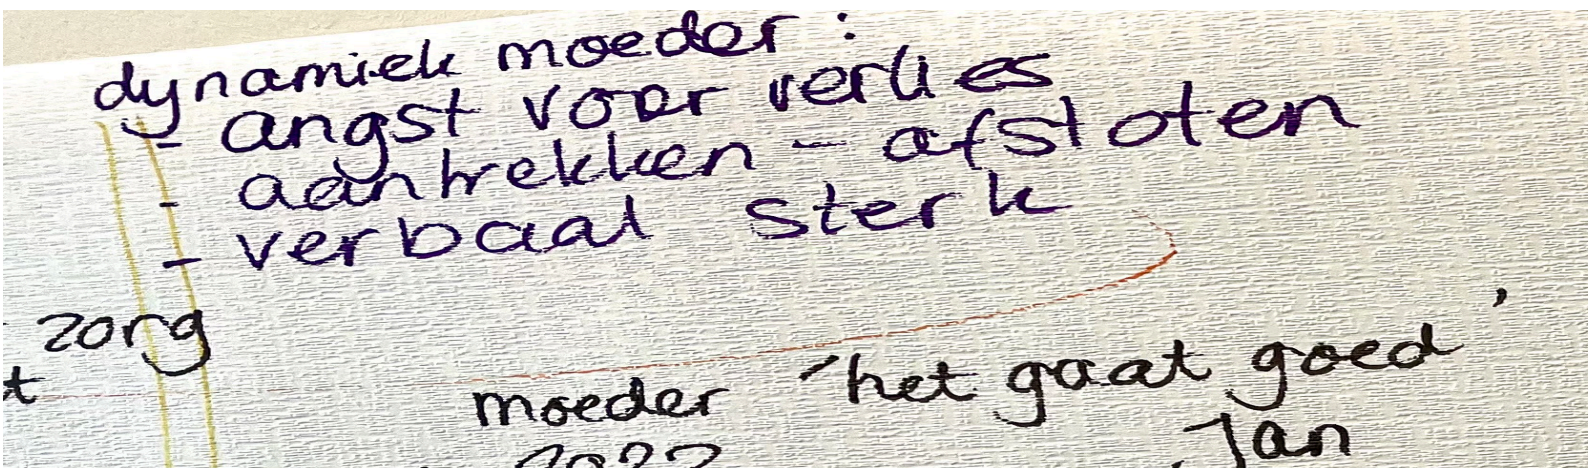 dynamiek moeder :
- angst voor verlies
- aantrekken - afstoten
- verbaal sterk
zorg
t
moeder 'het gaat goed'
2022 Jan